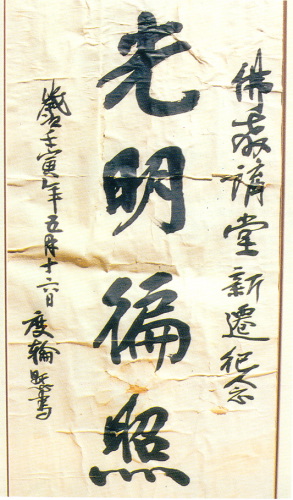 佛教講堂新遷紀念
光明徧照
歲壬寅年五月十六日 度輪 書